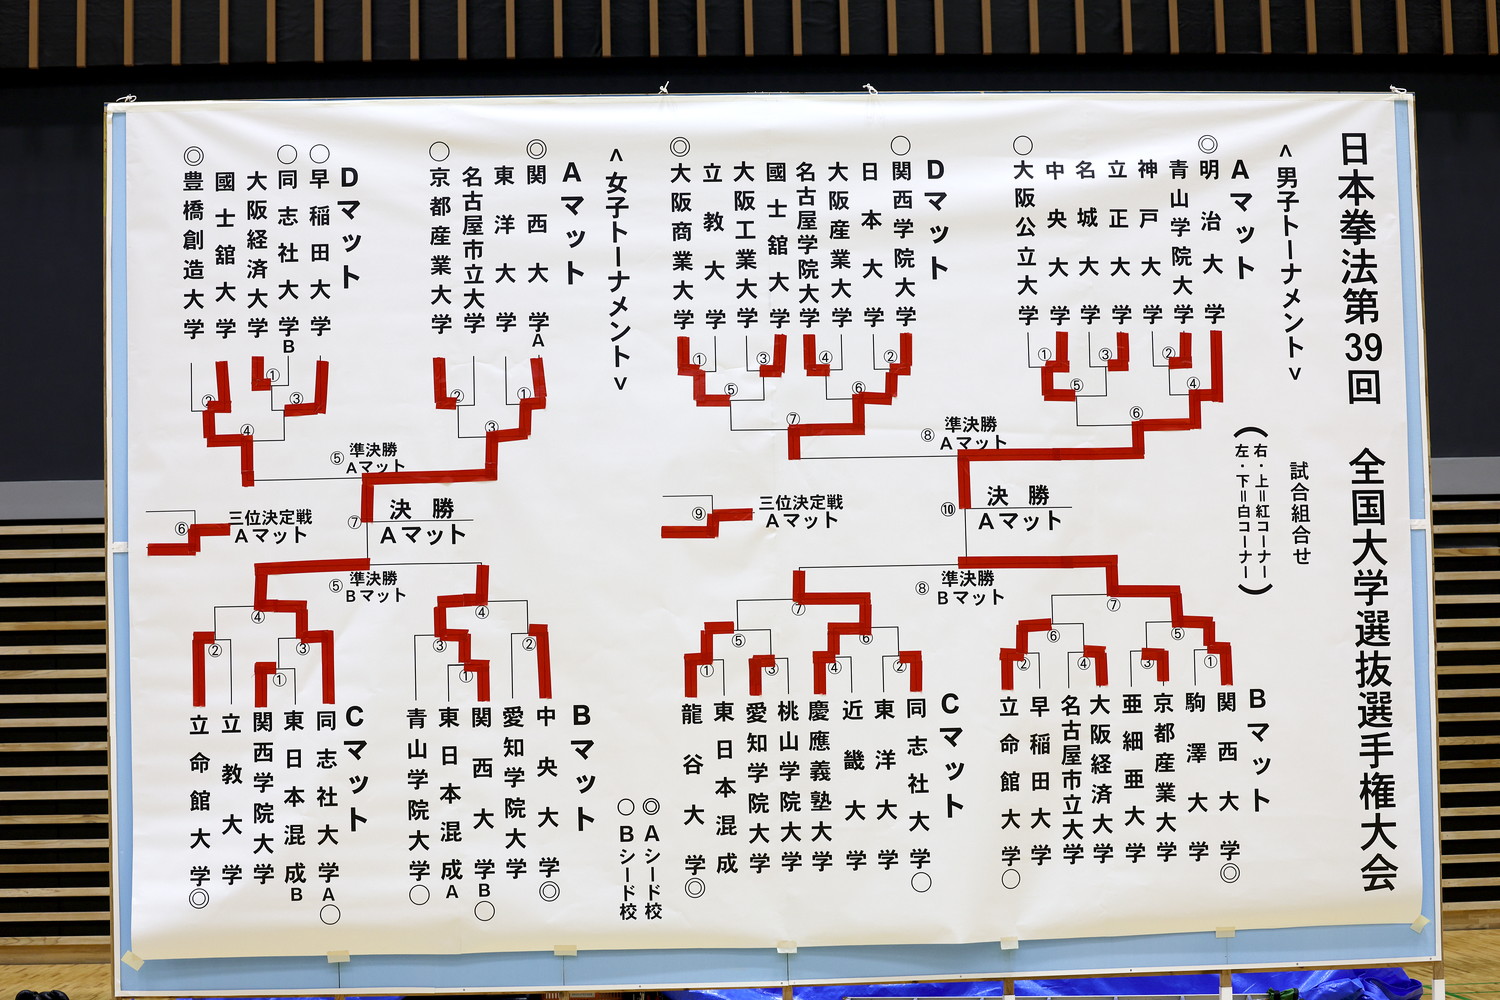 日本拳法第39回 全国大学選抜選手権大会
試合組合せ
(右・上=紅コーナー
左・下=白コーナー)
<男子トーナメント>
Aマット
◎明治大学
青山学院大学
神戸大学
立正大学
名城大学
中央大学
○大阪公立大学
① ③ ② ⑤ ④ ⑥
Dマット
○関西学院大学
日本大学
大阪産業大学
名古屋学院大学
國士舘大学
大阪工業大学
立教大学
◎大阪商業大学
① ③ ④ ② ⑤ ⑥ ⑦
⑧ 準決勝
Aマット
⑩ 決勝
Aマット
⑨ 三位決定戦
Aマット
⑧ 準決勝
Bマット
⑦ ⑥ ⑤ ② ④ ③ ①
Bマット
関西大学◎
駒澤大学
京都産業大学
亜細亜大学
大阪経済大学
名古屋市立大学
早稲田大学
立命館大学○
⑦ ⑤ ⑥ ① ③ ④ ②
Cマット
同志社大学○
東洋大学
近畿大学
慶應義塾大学
桃山学院大学
愛知学院大学
東日本混成
龍谷大学◎
◎Aシード校
○Bシード校
<女子トーナメント>
Aマット
◎関西大学A
東洋大学
名古屋市立大学
○京都産業大学
② ① ③
Dマット
○早稲田大学
○同志社大学B
大阪経済大学
國士舘大学
◎豊橋創造大学
② ① ③ ④
⑤ 準決勝
Aマット
⑦ 決勝
Aマット
⑥ 三位決定戦
Aマット
⑤ 準決勝
Bマット
④ ③ ② ①
Bマット
中央大学◎
愛知学院大学
関西大学B○
東日本混成A
青山学院大学○
④ ② ③ ①
Cマット
同志社大学A○
東日本混成B
関西学院大学
立教大学
立命館大学◎